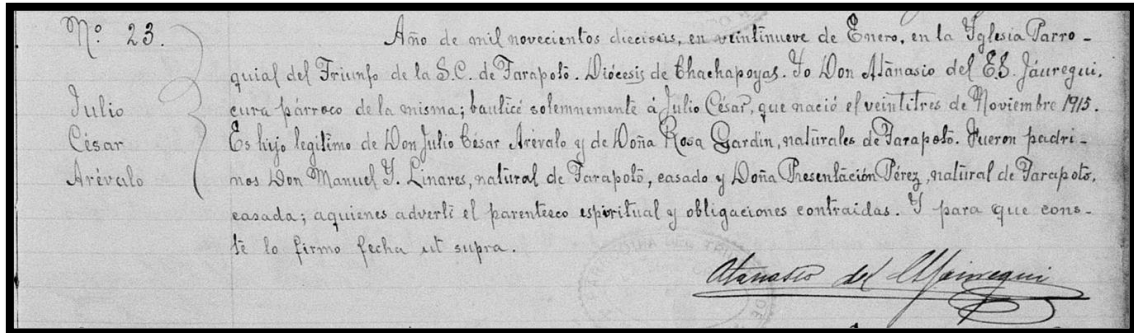 Nº 23.
Año de mil novecientos dieciseis, en veintinueve de Enero, en la Yglesia Parro-
quial del Triunfo de la S.C. de Tarapoto. Diócesis de Chachapoyas. Yo Don Atanasio del E.S. Jáuregui,
cura párroco de la misma; bauticé solemnemente á Julio César, que nació el veintitres de Noviembre 1915.
Es hijo legitimo de Don Julio César Arévalo y de Doña Rosa Gardin, naturales de Tarapoto. Fueron padri-
nos Don Manuel J. Linares, natural de Tarapoto, casado y Doña Presentación Pérez, natural de Tarapoto,
casada; aquienes advertí el parentesco espiritual y obligaciones contraidas. Y para que cons-
te lo firmo fecha ut supra.
Julio
César
Arévalo
Atanasio del E Jáuregui